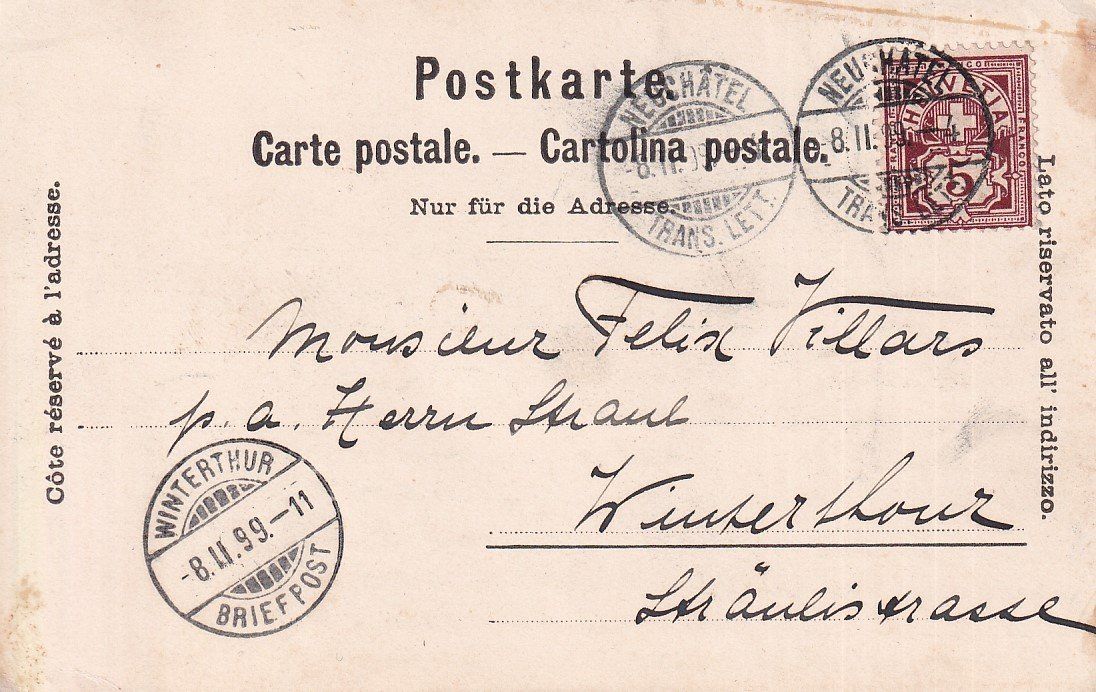 Postkarte.
Carte postale. — Cartolina postale.
Nur für die Adresse.
Côte réservé à l'adresse.
Lato riservato all' indirizzo.
NEUCHÂTEL
-8.II.99.
TRANS. LETT.
NEUCHÂTEL
-8.II.99.—4
TRANS. LETT.
FRANCO
HELVETIA
5
FRANCO
Monsieur Felix Villars
p. a. Herrn
Winterthour
Sträulistrasse
WINTERTHUR
-8.II.99.—11
BRIEFPOST